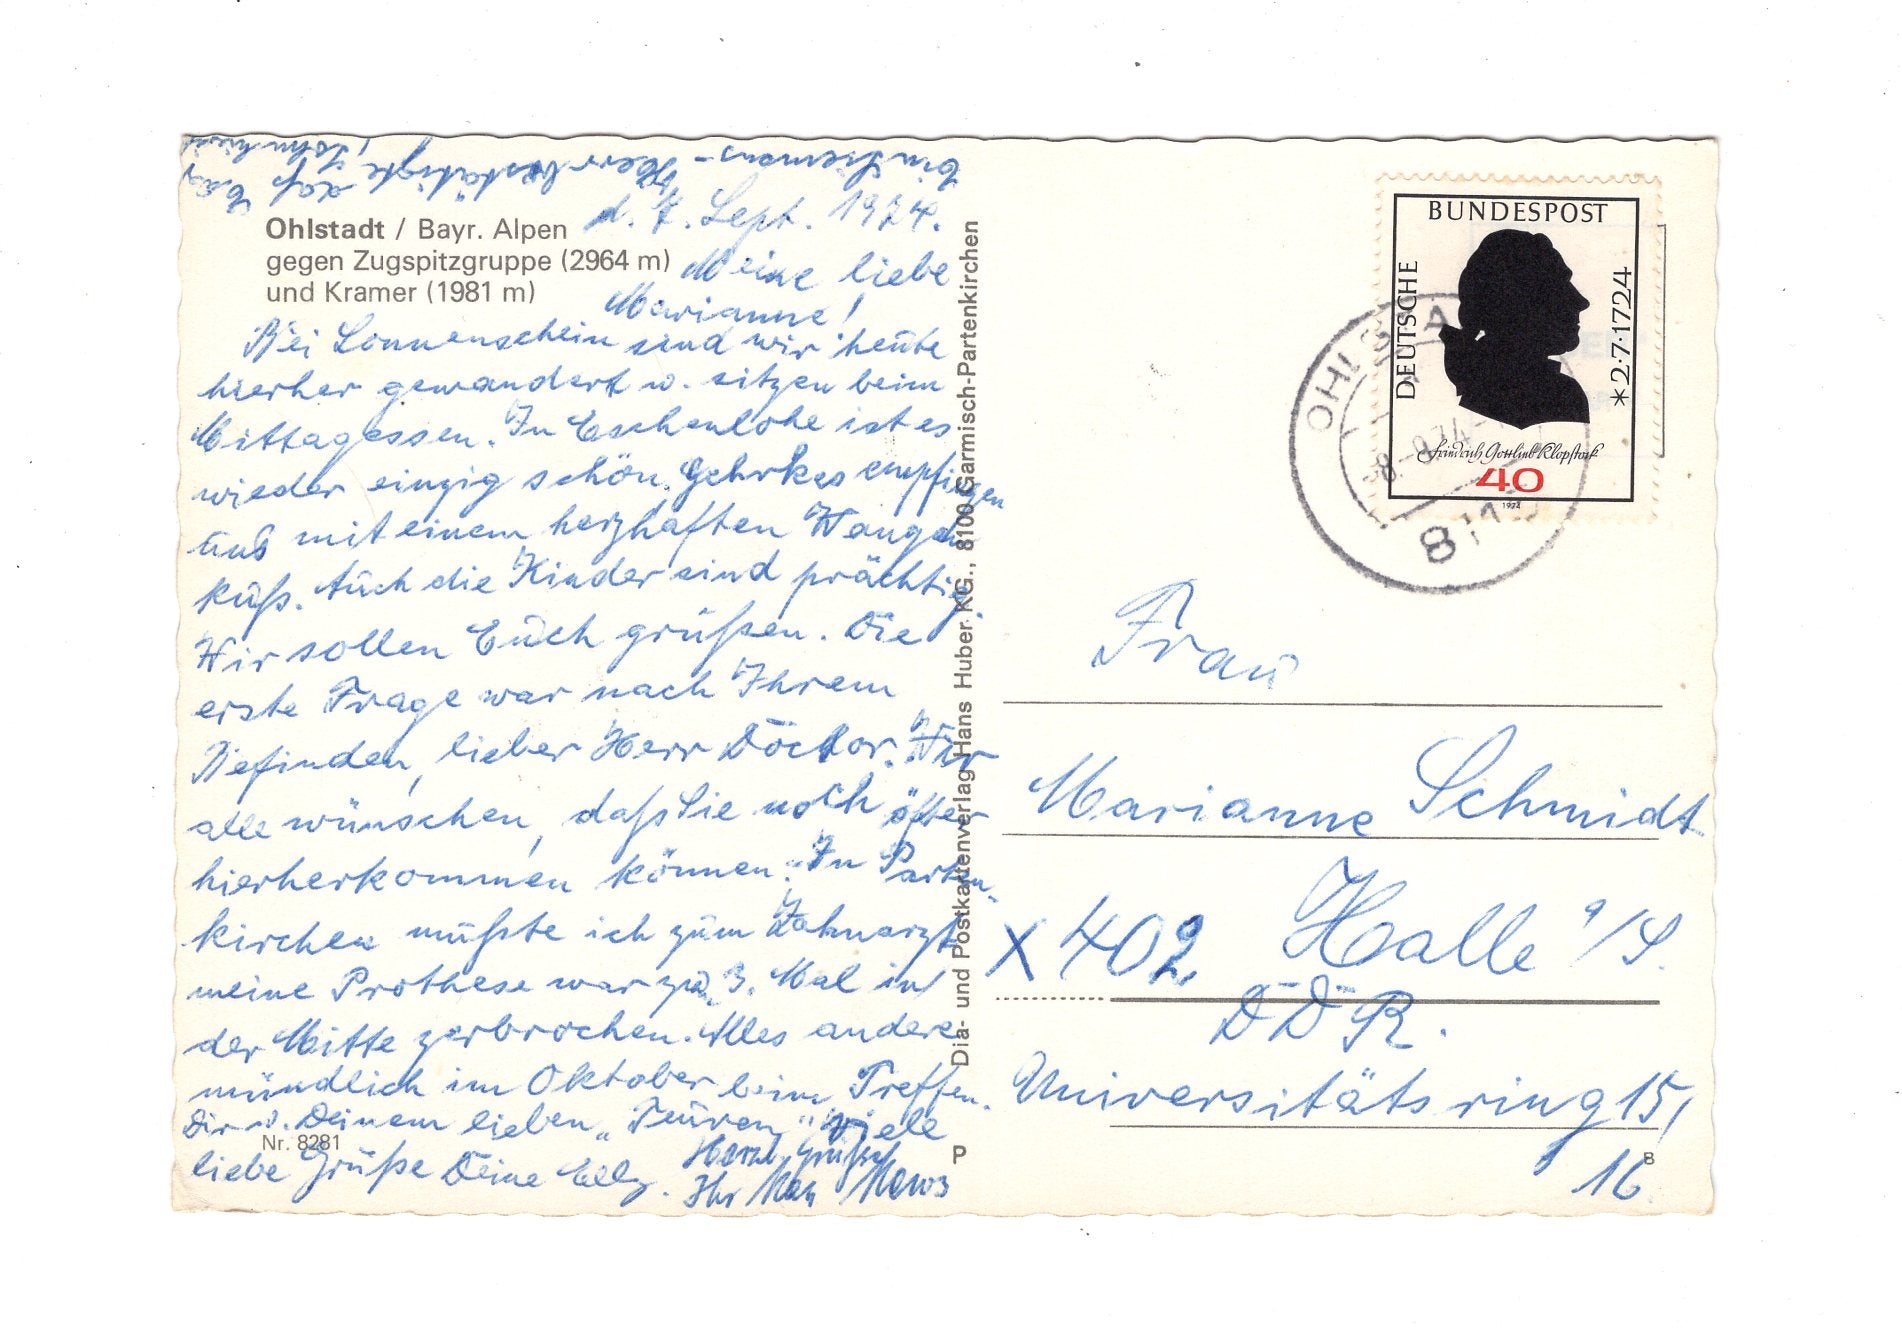 Ein Siemens-Herr bestätigte daß
Ohlstadt / Bayr. Alpen
gegen Zugspitzgruppe (2964 m)
und Kramer (1981 m)
d. 7. Sept. 1974.
Meine liebe
Marianne!
Bei Sonnenschein sind wir heute
hierher gewandert u. sitzen beim
Mittagessen. In Eschenlohe ist es
wieder einzig schön. Gehrkes empfingen
uns mit einem herzhaften Wangen
kuß. Auch die Kinder sind prächtig.
Wir sollen Euch grüßen. Die
erste Frage war nach Ihrem
Befinden, lieber Herr Doctor. Wir
alle wünschen, daß Sie noch öfter
hierherkommen können. In Parten-
kirchen mußte ich zum Zahnarzt
meine Prothese war zu 3. Mal in
der Mitte zerbrochen. Alles andere
mündlich im Oktober beim Treffen.
Dir u. Deinem lieben „Teuren" viele
liebe Grüße Deine Elly.
Herzl. Grüße
Ihr
Nr. 8281
Dia- und Postkartenverlag Hans Huber KG., 8100 Garmisch-Partenkirchen
P
DEUTSCHE
BUNDESPOST
*2·7·1724
Friedrich Gottlieb Klopstock
40
1974
OHLSTA
811
Frau
Marianne Schmidt
X 402 Halle a/S.
DDR.
Universitätsring 15/
16
B